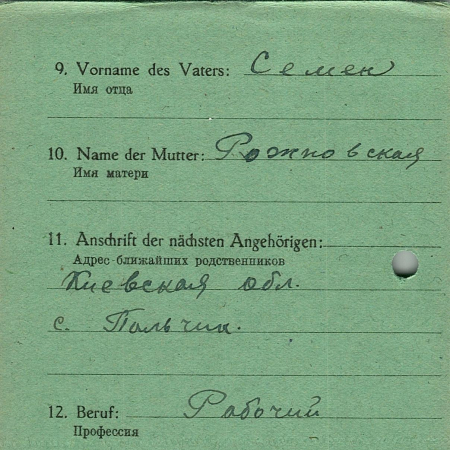 9. Vorname des Vaters: Семен
Имя отца
10. Name der Mutter: Рожновская
Имя матери
11. Anschrift der nächsten Angehörigen:
Адрес ближайших родственников
Киевская обл.
с. Пальчик.
12. Beruf: Рабочий
Профессия